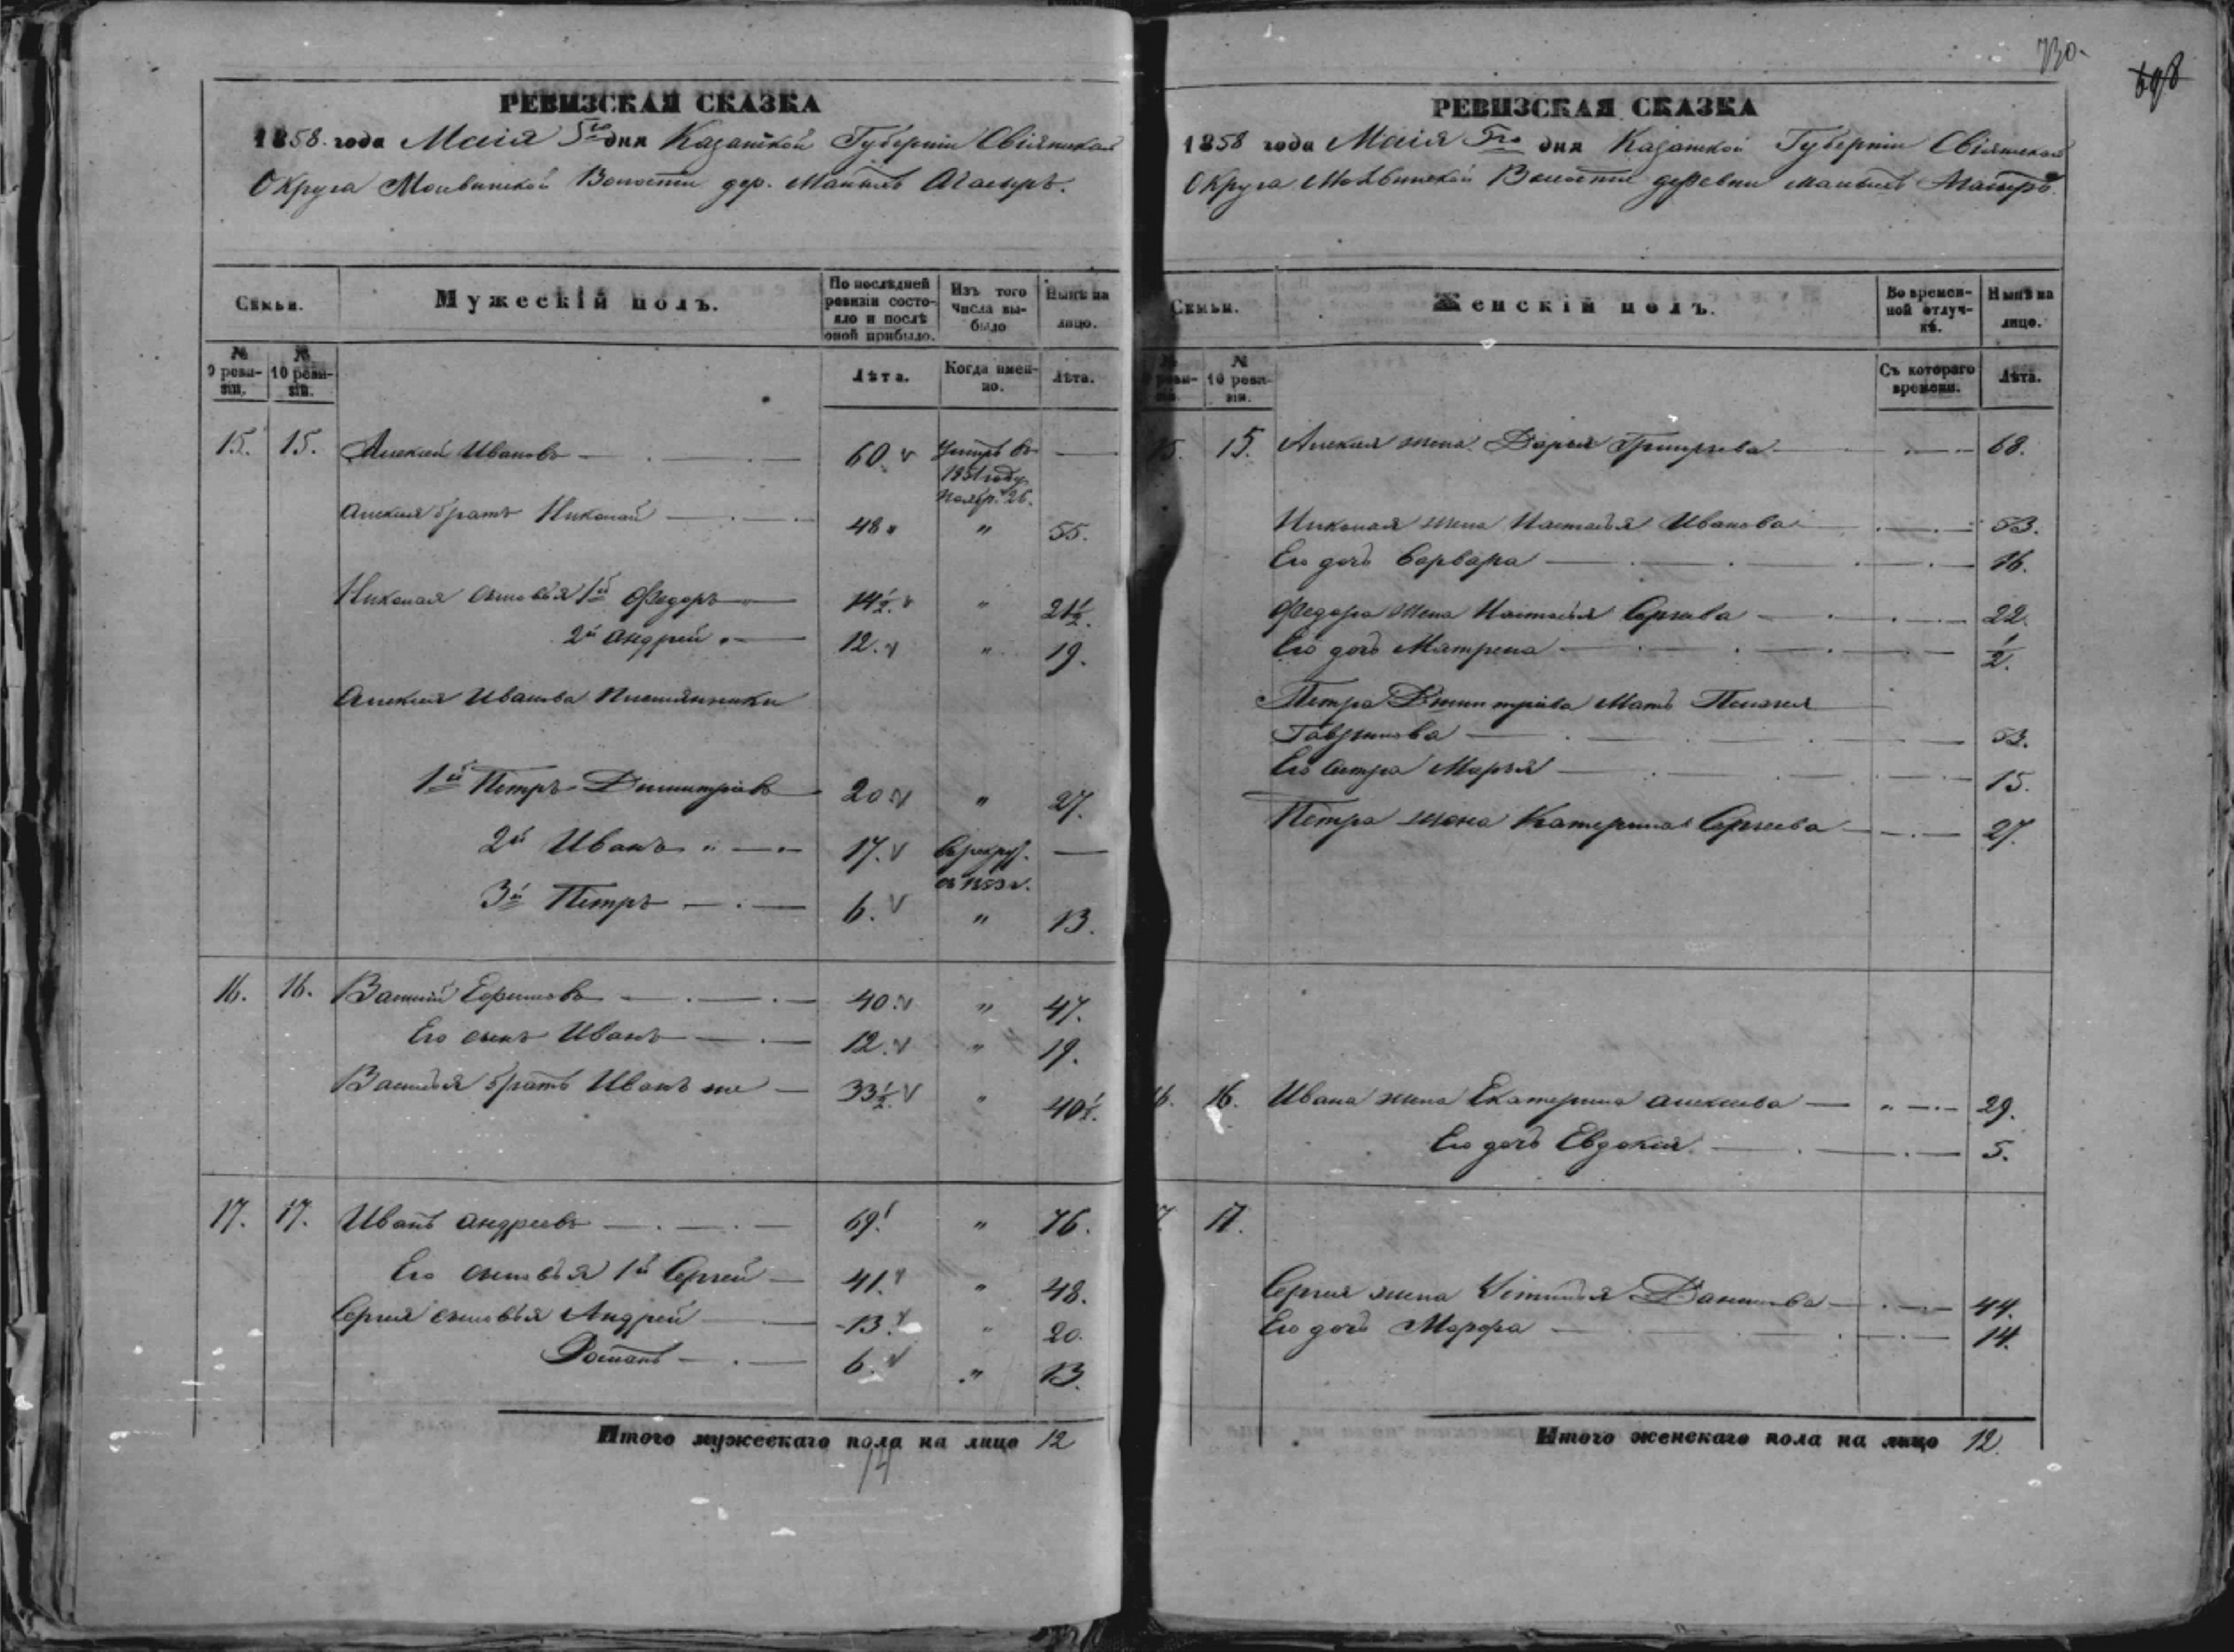 730.
698
РЕВИЗСКАЯ СКАЗКА
1858. года Маія 5го дня Казанской Губерніи Свіяжскаго
Округа Молвинской Волости дер. Малыхъ
Семьи.
Мужескій полъ.
По послѣдней ревизіи состояло и послѣ оной прибыло.
Изъ того числа выбыло
Нынѣ на лицо.
№ 9 ревизіи.
№ 10 ревизіи.
Лѣта.
Когда именно.
Лѣта.
15. 15. Алексей Ивановъ — 60. Умеръ въ 1851 году Ноябр. 26. —
Алексея братъ Николай — 48 " 55.
Николая сыновья 1й Федоръ — 14½. " 21½.
2й Андрей " — 12. " 19.
Алексея Иванова Племянники
1й Петръ Димитріевъ — 20. " 27.
2й Иванъ " — 17. —
3й Петръ — 6. " 13.
16. 16. Василій Ефимовъ — 40. " 47.
Его сынъ Иванъ — 12. " 19.
Василья братъ Иванъ же — 33½. " 40½.
17. 17. Иванъ Андреевъ — 69. " 76.
Его сыновья 1й Сергей — 41. " 48.
Сергея сыновья Андрей — 13. " 20.
Романъ — 6. " 13.
Итого мужескаго пола на лицо 12
14
РЕВИЗСКАЯ СКАЗКА
1858 года Маія 5го дня Казанской Губерніи Свіяжскаго
Округа Молвинской Волости деревни Малыхъ
Семьи.
Женскій полъ.
Во временной отлучкѣ.
Нынѣ на лицо.
№ 9 ревизіи.
№ 10 ревизіи.
Съ котораго времени.
Лѣта.
15. 15. Алексея жена Дарья Григорьева — 68.
Николая жена Настасья Иванова — 53.
Его дочь Варвара — 16.
Федора жена Настасья Сергеева — 22.
Его дочь Матрена — ½.
Петра Димитріева Мать Пелагея
Гаврилова — 53.
Его сестра Марья — 15.
Петра жена Катерина Сергеева — 27.
16. 16. Ивана жена Екатерина Алексеева — " — 29.
Его дочь Евдокия — 5.
17. 17.
Сергея жена Устинья Данилова — 44.
Его дочь Марфа — 14.
Итого женскаго пола на лицо 12.